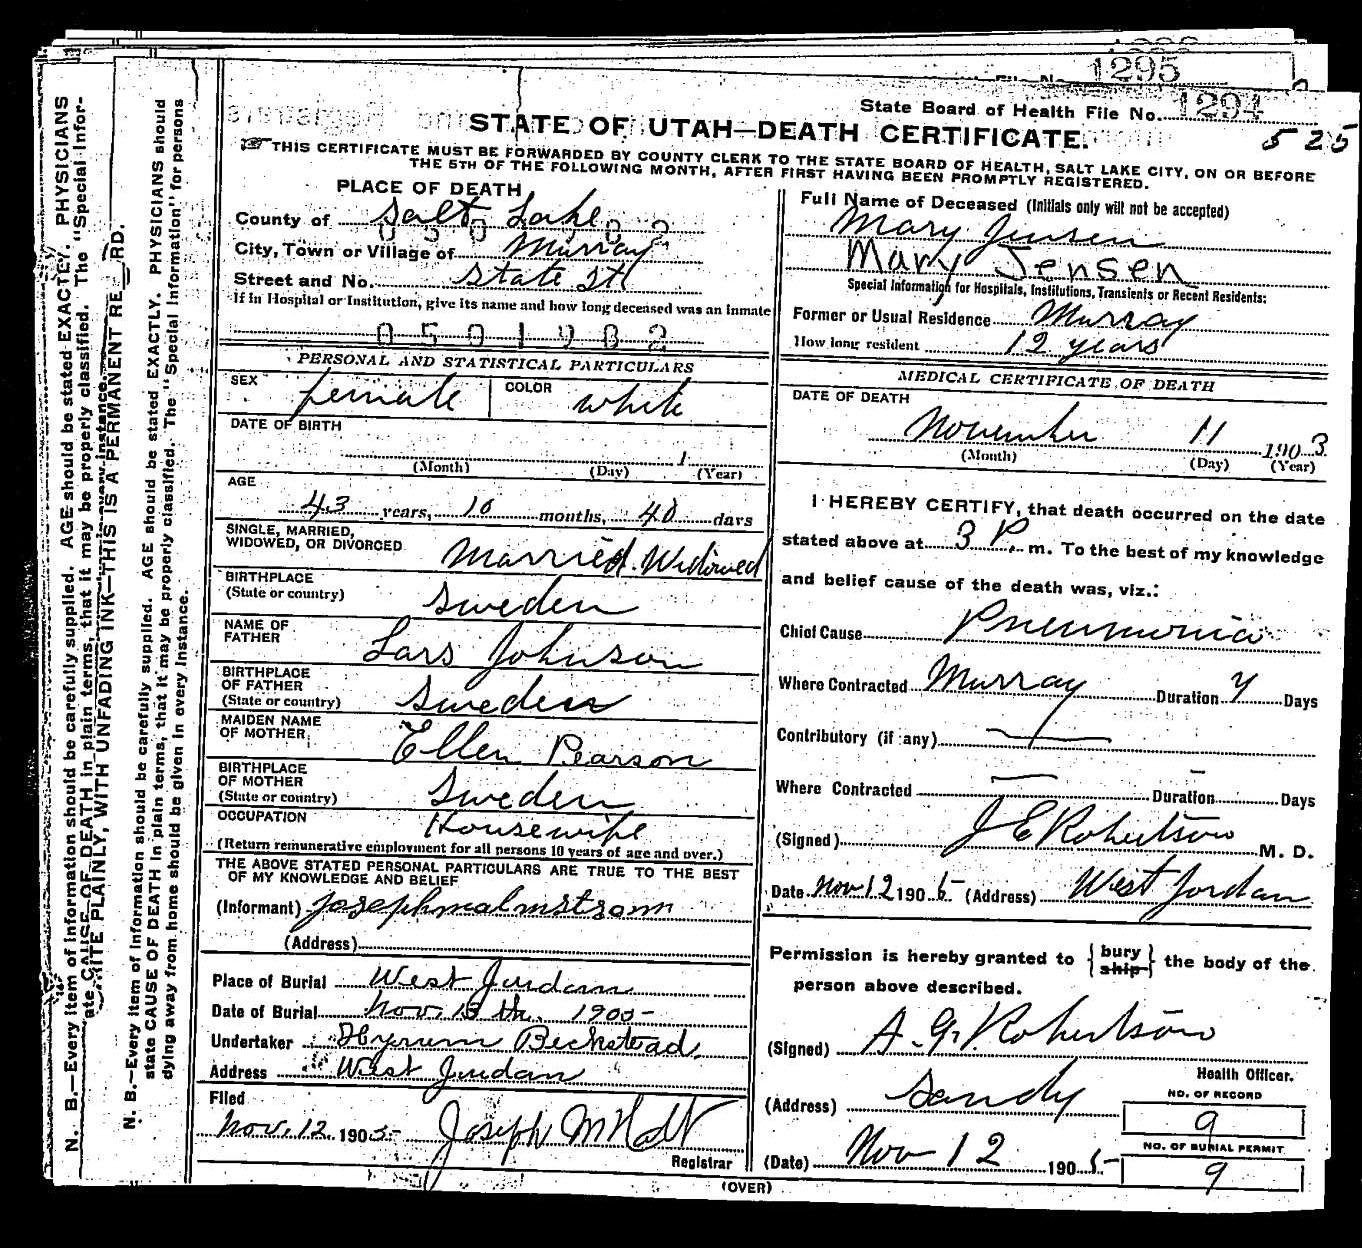 1295
State Board of Health File No. 1294
STATE OF UTAH—DEATH CERTIFICATE.
525
THIS CERTIFICATE MUST BE FORWARDED BY COUNTY CLERK TO THE STATE BOARD OF HEALTH, SALT LAKE CITY, ON OR BEFORE
THE 5TH OF THE FOLLOWING MONTH, AFTER FIRST HAVING BEEN PROMPTLY REGISTERED.
PLACE OF DEATH
County of Salt Lake
City, Town or Village of Murray
Street and No. State St
If in Hospital or Institution, give its name and how long deceased was an Inmate
0501902
PERSONAL AND STATISTICAL PARTICULARS
SEX female COLOR white
DATE OF BIRTH
1
(Month) (Day) (Year)
AGE
43 years, 10 months, 40 days
SINGLE, MARRIED,
WIDOWED, OR DIVORCED Married. Widowed
BIRTHPLACE
(State or country) Sweden
NAME OF
FATHER Lars Johnson
BIRTHPLACE
OF FATHER
(State or country) Sweden
MAIDEN NAME
OF MOTHER Ellen Pearson
BIRTHPLACE
OF MOTHER
(State or country) Sweden
OCCUPATION Housewife
(Return remunerative employment for all persons 10 years of age and over.)
THE ABOVE STATED PERSONAL PARTICULARS ARE TRUE TO THE BEST
OF MY KNOWLEDGE AND BELIEF
(Informant) Joseph malmstrom
(Address)
Place of Burial West Jordan
Date of Burial Nov. 13 th. 1905
Undertaker Hyrum Beckstead
Address West Jordan
Filed
Nov. 12 1905 Joseph M Holt
Registrar
Full Name of Deceased (Initials only will not be accepted)
Mary Jensen
Mary Jensen
Special Information for Hospitals, Institutions, Transients or Recent Residents:
Former or Usual Residence Murray
How long resident 12 years
MEDICAL CERTIFICATE OF DEATH
DATE OF DEATH
November 11 1903
(Month) (Day) (Year)
I HEREBY CERTIFY, that death occurred on the date
stated above at 3 P. m. To the best of my knowledge
and belief cause of the death was, viz.:
Chief Cause Pneumonia
Where Contracted Murray Duration 7 Days
Contributory (if any) —
Where Contracted — Duration — Days
(Signed) J E Robertson M. D.
Date Nov 12 1905 (Address) West Jordan
Permission is hereby granted to { bury
ship } the body of the
person above described.
(Signed) A. G. Robertson
Health Officer.
(Address) Sandy
NO. OF RECORD
9
(Date) Nov 12 1905
NO. OF BURIAL PERMIT
9
(OVER)
N. B.—Every item of information should be carefully supplied. AGE should be stated EXACTLY. PHYSICIANS should
state CAUSE OF DEATH in plain terms, that it may be properly classified. The "Special Information" for persons
dying away from home should be given in every instance.
N. B.—Every item of information should be carefully supplied. AGE should be stated EXACTLY. PHYSICIANS
ate CAUSE OF DEATH in plain terms, that it may be properly classified. The "Special Infor-
ITE PLAINLY, WITH UNFADING INK—THIS IS A PERMANENT RE RD.